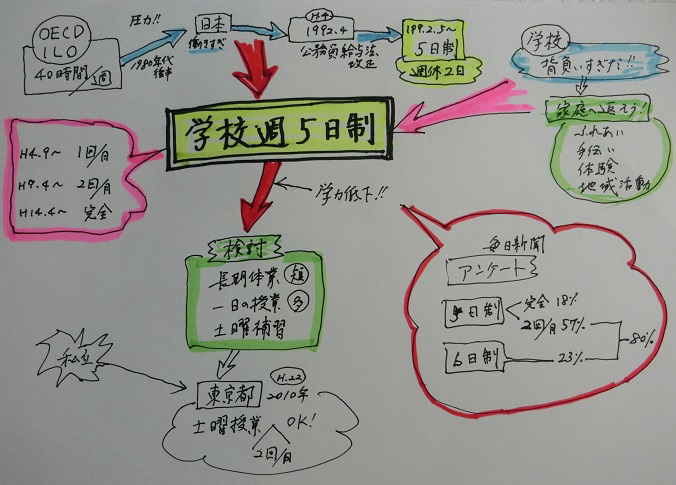 OECD
ILO
40時間/週
圧力!!
1980年代
後半
日本
働きすぎ
H4
1992.4
公務員給与法
改正
1992.5~
5日制
週休2日
学校
背負いすぎだ!!
家庭へ返そう!
ふれあい
手伝い
体験
地域活動
学校週5日制
H4.9~ 1回/月
H7.4~ 2回/月
H14.4~ 完全
学力低下!!
検討
長期休業 短
一日の授業 多
土曜補習
私立
東京都
H.22
2010年
土曜授業 OK!
2回/月
毎日新聞
アンケート
5日制
完全 18%
2回/月 57%
80%
6日制
23%